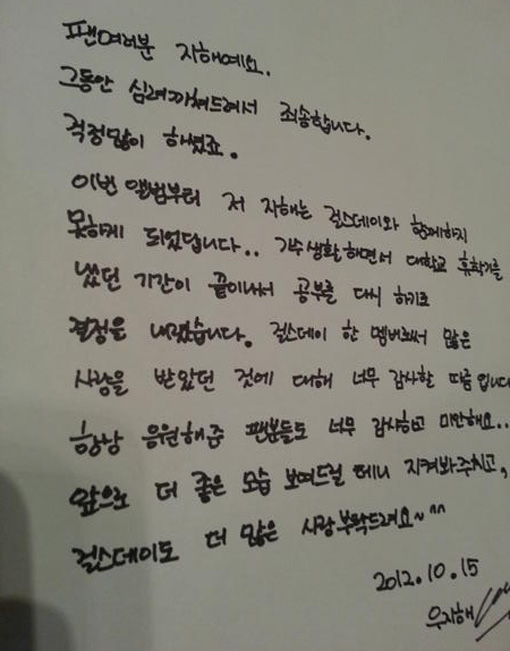 팬여러분 지해예요.
그동안 심려끼쳐드려서 죄송합니다.
걱정많이 하셨죠.
이번 앨범부터 저 지해는 걸스데이와 함께하지
못하게 되었답니다.. 가수생활하면서 대학교 휴학기를
냈던 기간이 끝이나서 공부를 다시 하기로
결정을 내렸습니다. 걸스데이 한 멤버로써 많은
사랑을 받았던 것에 대해 너무 감사할 따름입니다
항상 응원해준 팬분들도 너무 감사하고 미안해요..
앞으로 더 좋은 모습 보여드릴 테니 지켜봐주시고,
걸스데이도 더 많은 사랑부탁드려요~^^
2012.10.15
우지해